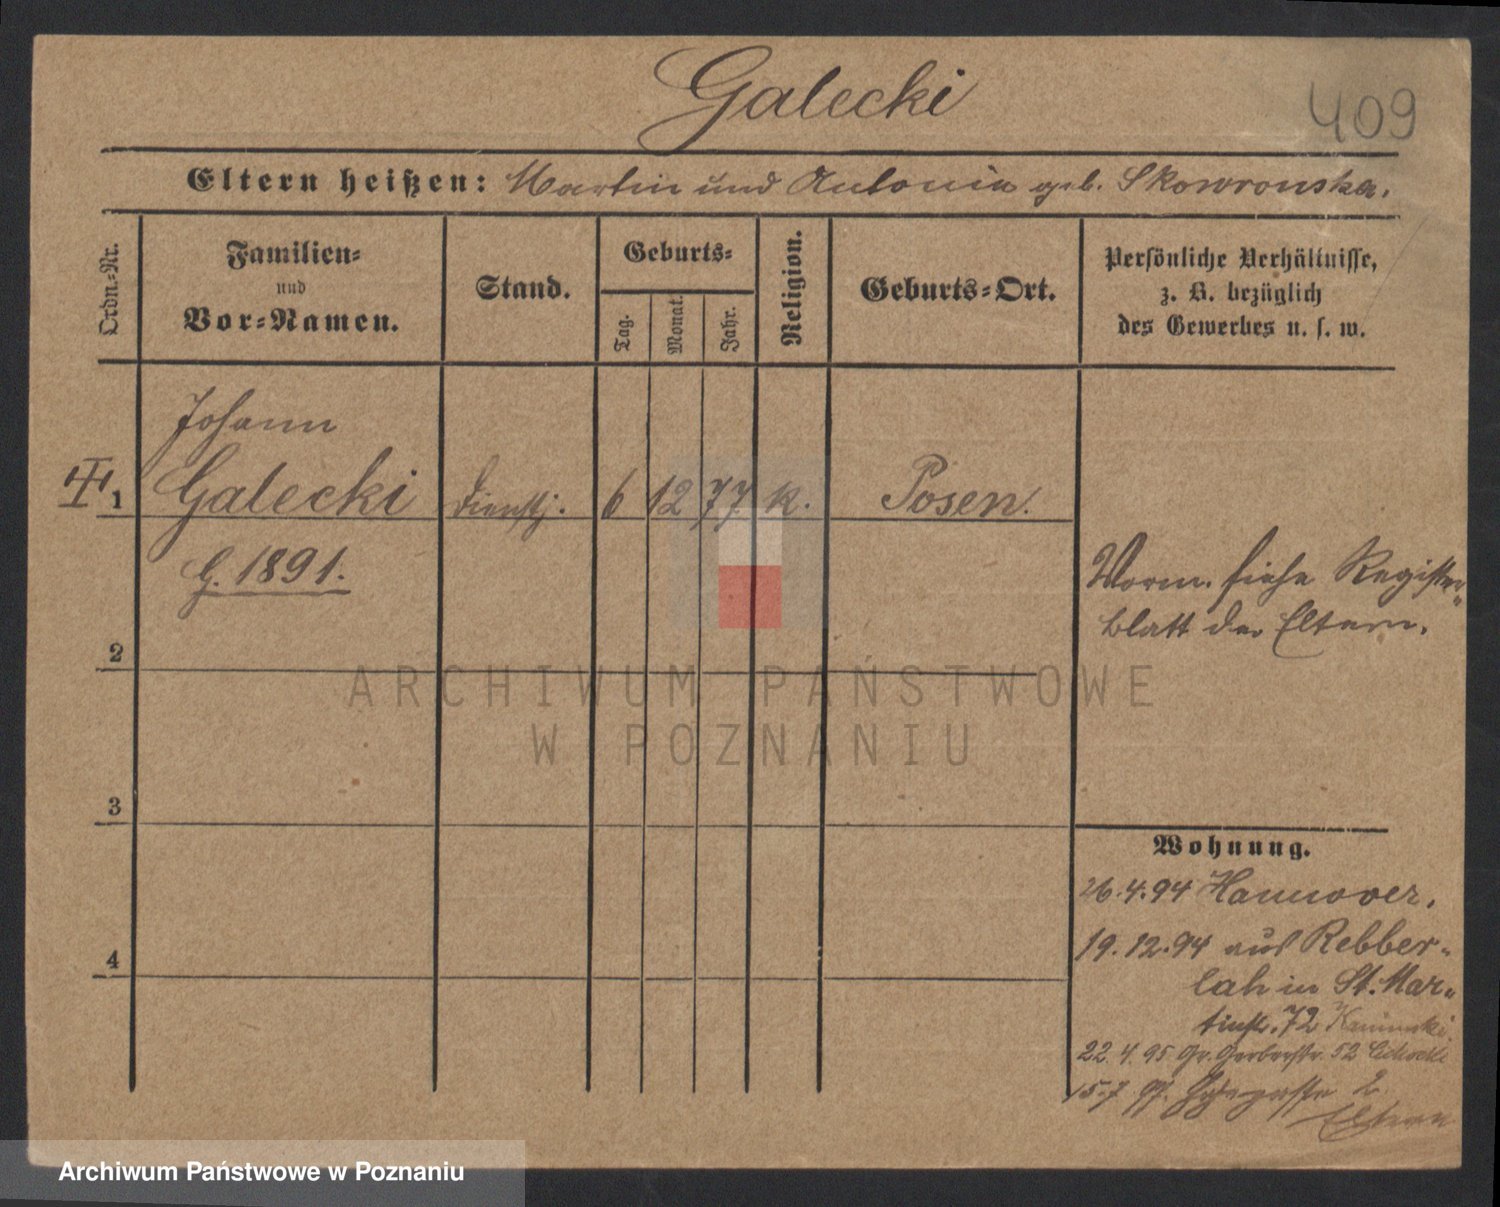 Galecki
409
Eltern heißen: Martin und Antonie geb. Skowronska.
Ordn.-Nr.
Familien-
und
Vor-Namen.
Stand.
Geburts-
Tag.
Monat.
Jahr.
Religion.
Geburts-Ort.
Persönliche Verhältnisse,
z. B. bezüglich
des Gewerbes u. s. w.
Johann
1 Galecki Dienstj. 6 12 77. k. Posen.
G. 1891.
Vorm. siehe Register-
blatt der Eltern.
2
ARCHIWUM PAŃSTWOWE
W POZNANIU
3
Wohnung.
26.4.94 Hannover.
19.12.94 aus Rebber-
lah in St. Mar-
tinstr. 72
4
22.4.95 Gr. Gerberstr. 52
15.7 2
Eltern
Archiwum Państwowe w Poznaniu